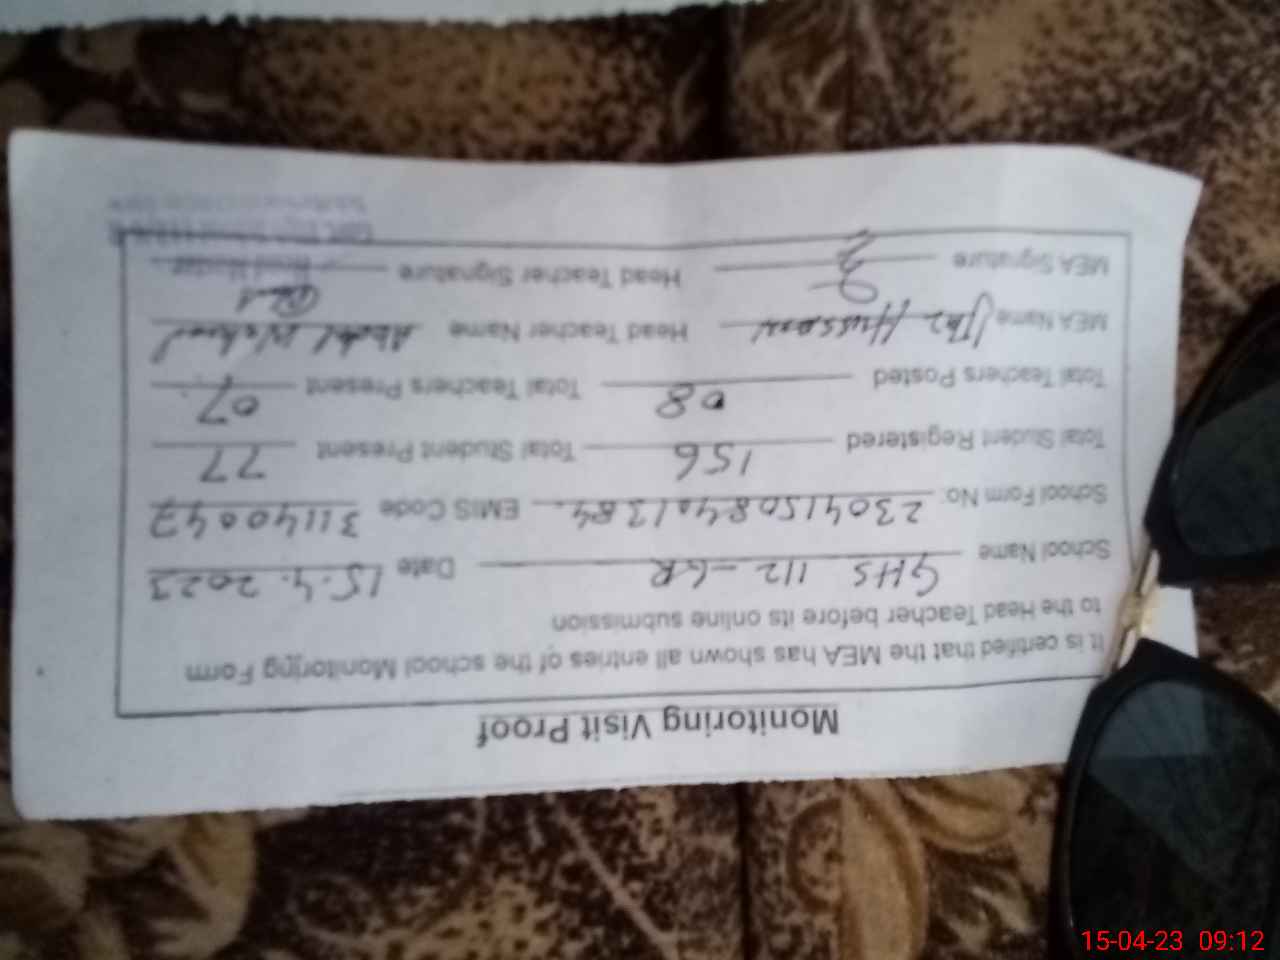 Monitoring Visit Proof
It is certified that the MEA has shown all entries of the school Monitoring Form
to the Head Teacher before its online submission
School Name GHS 112-GR Date 15.4.2023
School Form No. 23041508401384 EMIS Code 31140047
Total Student Registered 156 Total Student Present 77
Total Teachers Posted 08 Total Teachers Present 07
MEA Name Hussain Head Teacher Name Abdul Waheed
MEA Signature Head Teacher Signature
Head Master
15-04-23 09:12